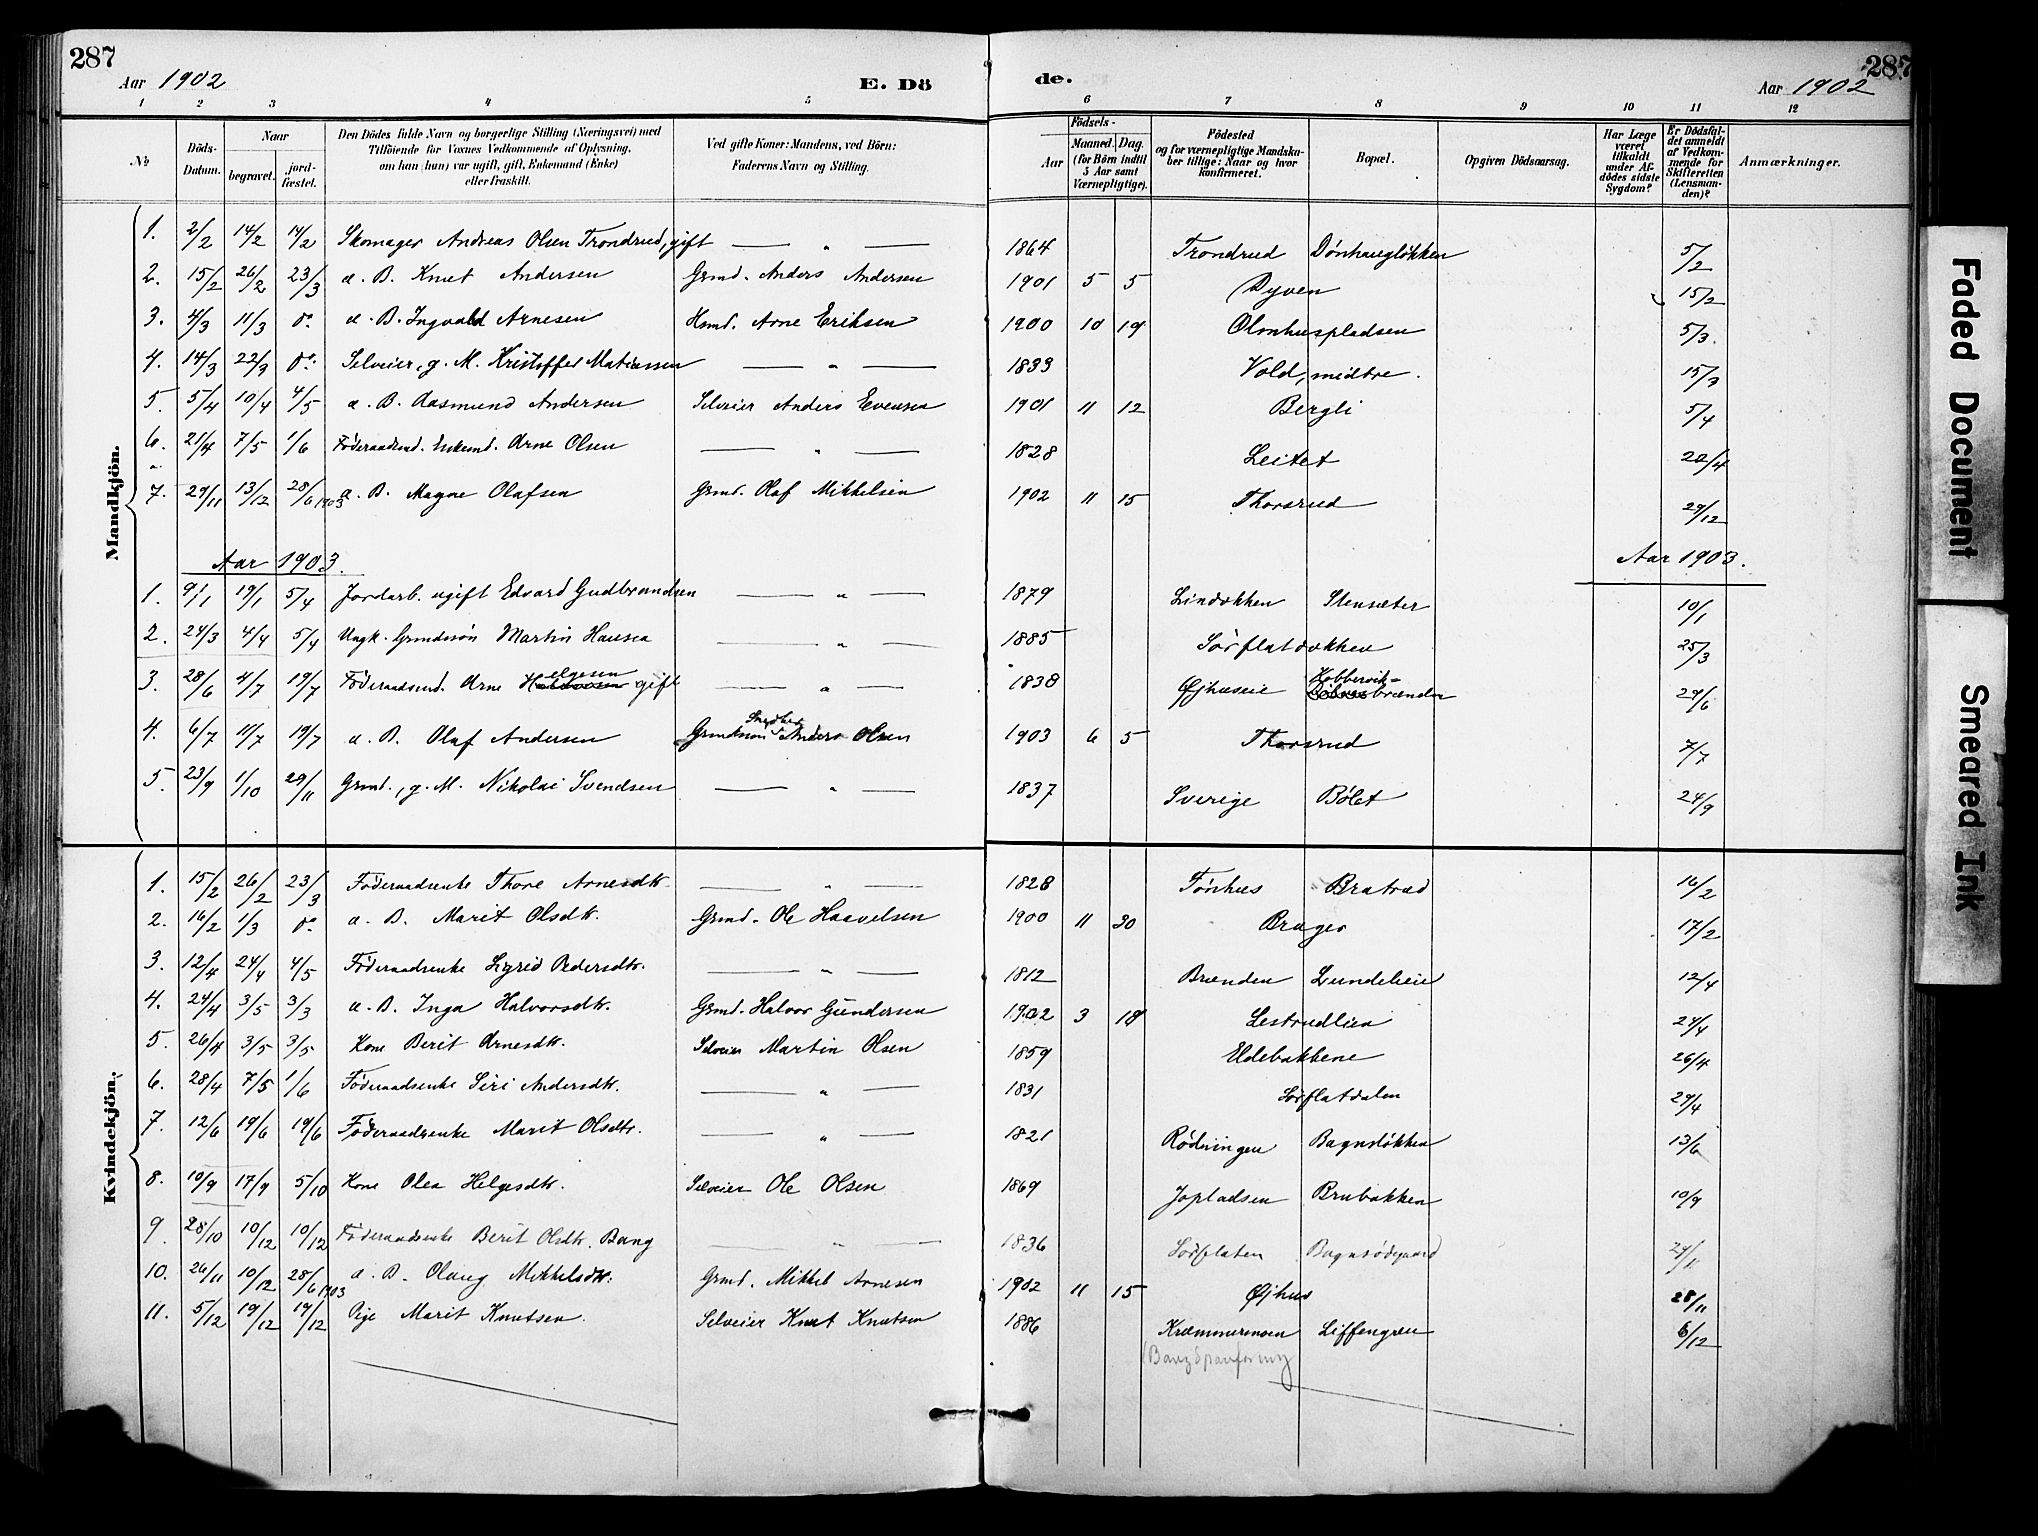 287
Aar 1902
E. Dö
de.
287
Aar 1902
1 2 3 4 5 6 7 8 9 10 11 12
No
Döds-Datum.
Naar
begravet.
jord-fæstet.
Den Dödes fulde Navn og borgerlige Stilling (Næringsvei) med
Tilföiende for Voxnes Vedkommende af Oplysning,
om han (hun) var ugift, gift, Enkemand (Enke)
eller fraskilt.
Ved gifte Koner: Mandens, ved Börn:
Faderens Navn og Stilling.
Födsels-
Aar
Maaned. Dag.
(for Börn indtil
5 Aar samt
Værnepligtige).
Födested
og for værnepligtige Mandska-
ber tillige: Naar og hvor
konfirmeret.
Bopæl.
Opgiven Dödsaarsag.
Har Læge
været
tilkaldt
under Af-
dödes sidste
Sygdom?
Er Dödsfal-
det anmeldt
af Vedkom-
mende for
Skifteretten
(Lensman-
den)?
Anmærkninger.
Mandkjön.
1. 2/2 14/2 14/2 Skomager Andreas Olsen Trondrud, gift — " — 1864 Trondrud Dönhaugløkken 5/2
2. 15/2 26/2 23/3 a. B. Knut Andersen Grmd. Anders Andersen 1901 5 5 Dyven 15/2
3. 4/3 11/3 do a. B. Ingvald Arnesen Hmd. Arne Eriksen 1900 10 19 Olmhuspladsen 5/3.
4. 14/3 22/3 do Selveier, g. M. Kristoffer Matiassen — " — 1833 Vold, midtre. 15/3
5. 5/4 10/4 4/5 a. B. Aasmund Andersen Selveier Anders Evensen 1901 11 12 Bergli 5/4
6. 21/4 7/5 1/6 Föderaadsmd. Enkemd. Arne Olsen — " — 1828 Leitet 22/4
7. 29/11 13/12 28/6 1903 a. B. Magne Olafsen Grmd. Olaf Mikkelsen 1902 11 15 Thorsrud 29/12
Aar 1903. Aar 1903.
1. 9/1 19/1 5/4 Jordarb. ugift Edvard Gudbrandsen — " — 1879 Lindokken Stensæter 10/1
2. 24/3 4/4 5/4 Ungk. Grmdssön Martin Hansen — " — 1885 Sörflatdokken 25/3
3. 28/6 4/7 19/7 Föderaadsmd. Arne Helgesen gift — " — 1838 Øjhuseie Kobbervik=brænden 29/6
4. 6/7 11/7 19/7 a. B. Olaf Andersen Grmdssön Anders Olsen 1903 6 5 Thorsrud 7/7
5. 23/9 1/10 29/11 Grmd., g. M. Nikolai Svendsen — " — 1837 Sverige Bölet 24/9
Kvindekjön.
1. 15/2 26/2 23/3 Föderaadsenke Thore Arnesdtr. — " — 1828 Tönhus Bratrud 16/2
2. 16/2 1/3 do a. B. Marit Olsdtr. Grmd. Ole Haavelsen 1900 11 30 Brager 17/2
3. 12/4 24/4 4/5 Föderaadsenke Sigrid Pedersdtr. — " — 1812 Brænden Lundeleie 12/4
4. 24/4 3/5 3/3 a. B. Inga Halvorsdtr. Grmd. Halvor Gundersen 1902 3 18 Lestrudlien 24/4
5. 26/4 3/5 3/5 Kone Berit Arnesdtr. Selveier Martin Olsen 1859 Eldebakkene 26/4
6. 28/4 7/5 1/6 Föderaadsenke Siri Andersdtr. — " — 1831 Sörflatdalen 29/4
7. 12/6 19/6 19/6 Föderaadsenke Marit Olsdtr. — " — 1821 Rødningen Bagnsløkken 13/6
8. 10/9 17/9 5/10 Kone Olea Helgesdtr. Selveier Ole Olsen 1869 Jopladsen Brubakken 10/9
9 28/10 10/12 10/12 Föderaadsenke Berit Olsdtr. Bang — " — 1836 Sörflaten Bagnsödegaard 24/11
10. 26/11 10/12 28/6 1903 a. B. Olaug Mikkelsdtr. Grmd. Mikkel Arnesen 1902 11 15 Øjhus 28/11
11. 5/12 19/12 19/12 Pige Marit Knutsen. Selveier Knut Knutsen 1886 Kræmmermoen Liffengren 6/12
Faded Document
Smeared Ink